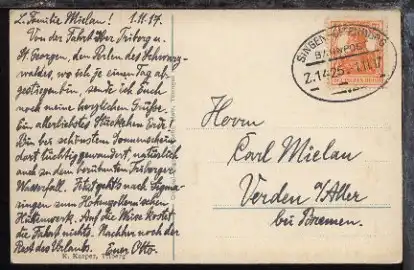 L. Familie Mielau! 1.11.17.
Von der Fahrt über Triberg u.
St. Georgen, den Perlen des Schwarz-
waldes, wo ich je einen Tag ab-
gestiegen bin, sende ich Euch
noch meine herzlichen Grüße.
Ein allerliebstes Stückchen Erde!
Bin bei schönstem Sonnenschein
dort tüchtig gewandert, natürlich
auch zu dem berühmten Triberger
Wasserfall. Jetzt geht's nach Sigma-
ringen zum Hohenzollernschen
Hüttenwerk. Auf die Weise kostet
die Fahrt nichts. Nachher noch der
Rest des Urlaubs. Euer Otto.
K. Karper, Triberg
BAHNPOST
Z.1425 1.11.17
Herrn
Carl Mielau
Verden a/Aller
bei Bremen.